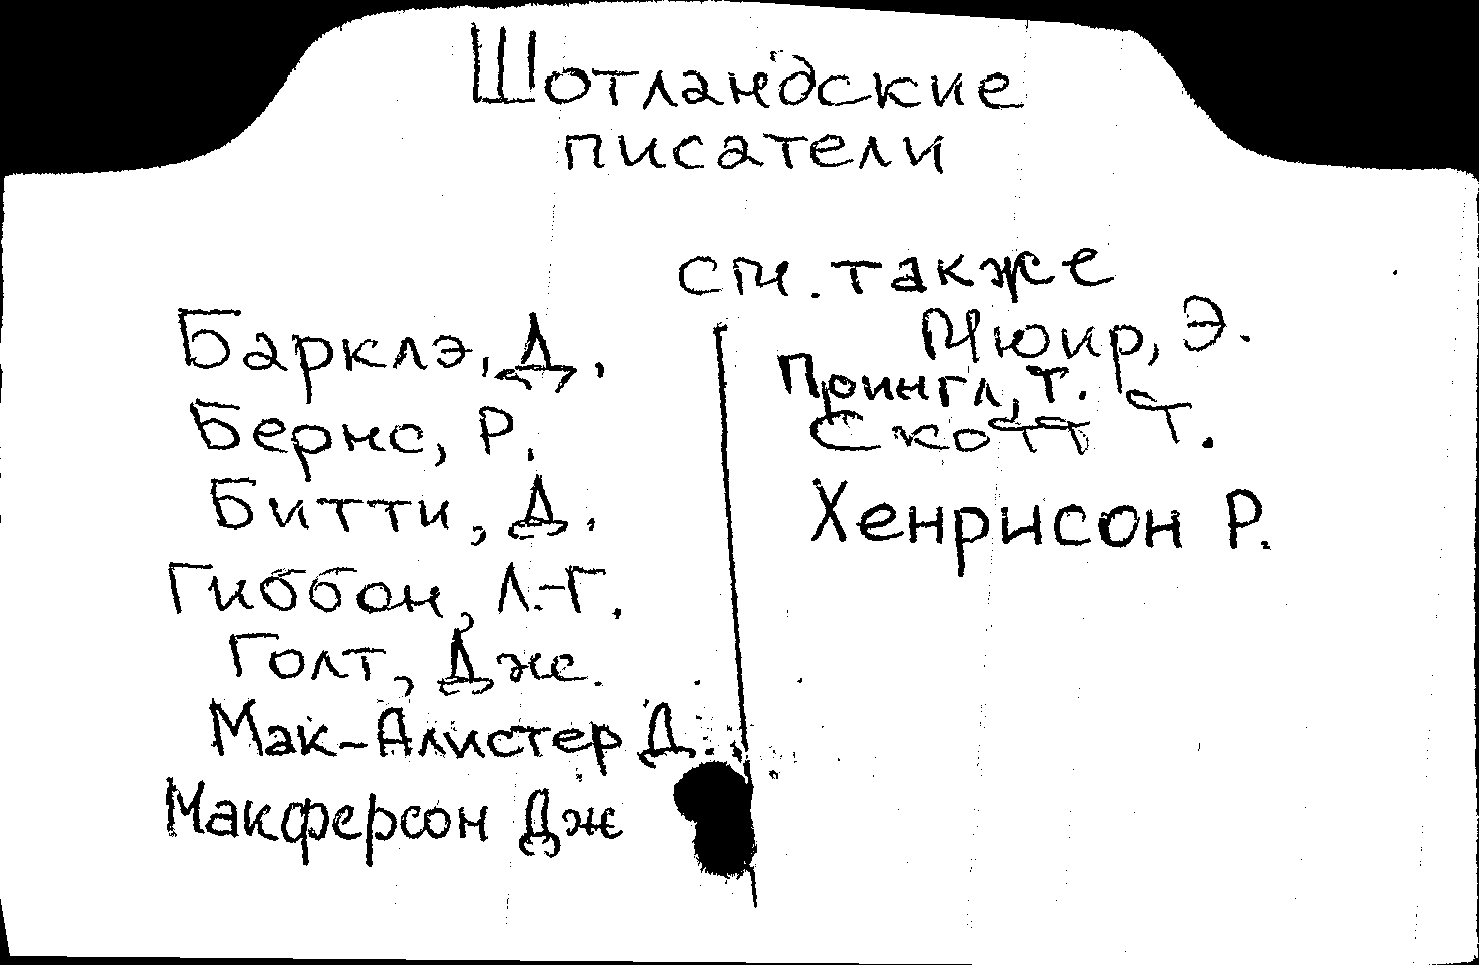 Шотландские
писатели
см. также
Барклэ, Д.
Бернс, Р.
Битти, Д.
Гиббон, Л.-Г.
Голт, Дж.
Мак-Алистер Д.
Макферсон Дж
Мюир, Э.
Прингл, Т.
Скотт Т.
Хенрисон Р.